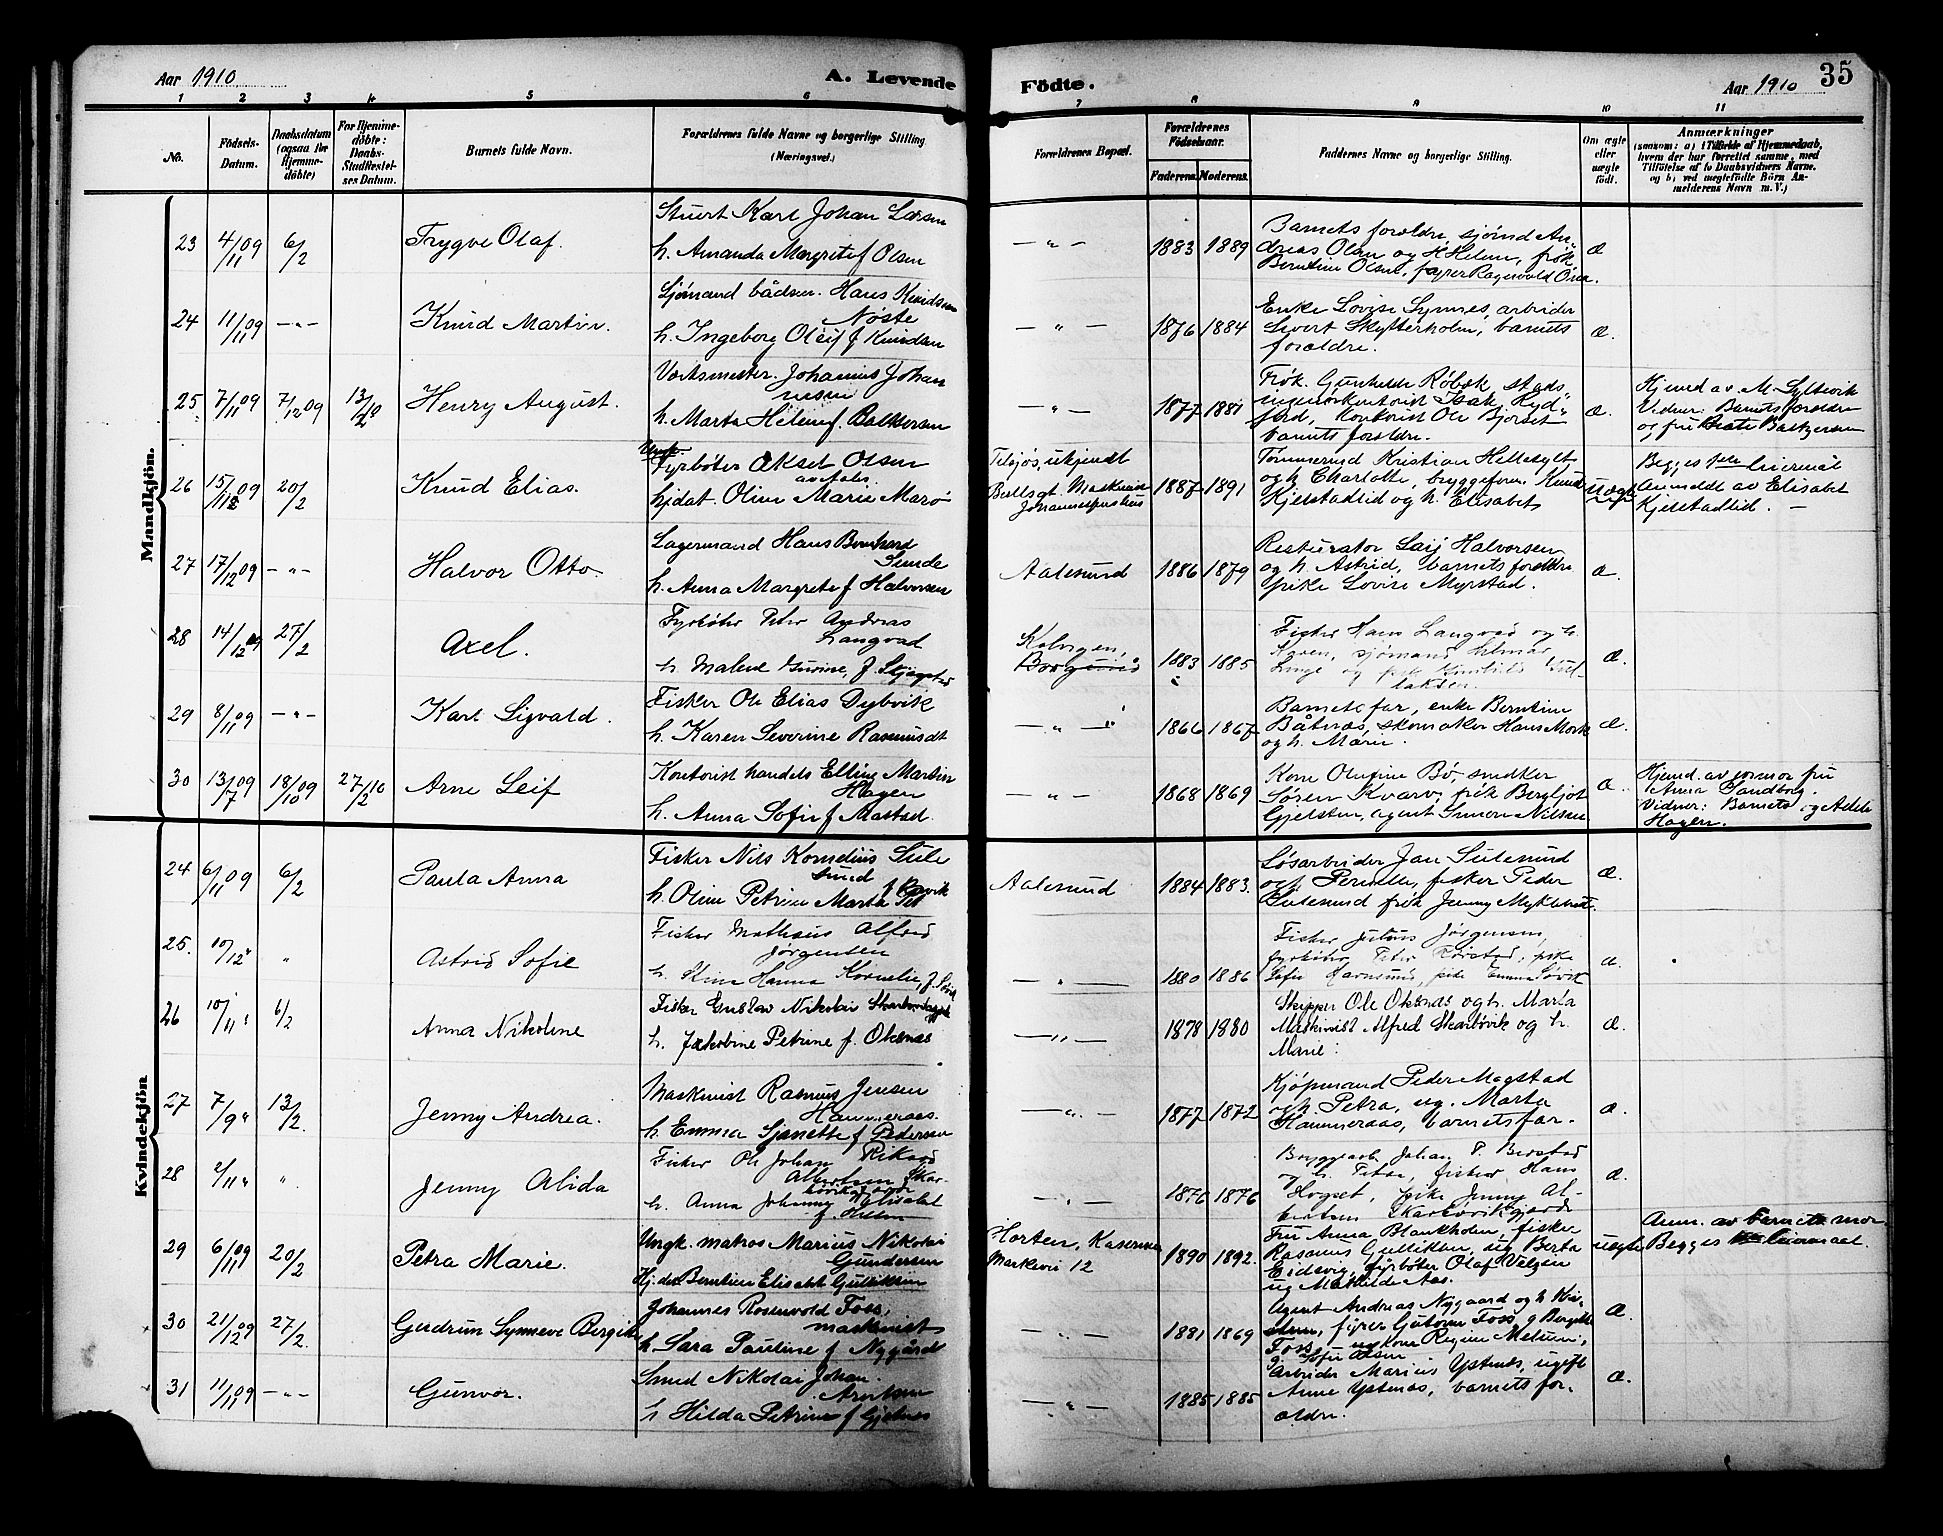 Aar 1910
A. Levende
Födte.
Aar 1910
35
1 2 3 4 5 6 7 8 9 10 11
No.
Födsels-
Datum.
Daabsdatum
(ogsaa for
Hjemme-
döbte)
For Hjemme-
döbte:
Daabs-
Stadfæstel-
ses Datum.
Barnets fulde Navn.
Forældrenes fulde Navne og borgerlige Stilling
(Næringsvei.)
Forældrenes Bopæl.
Forældrenes
Födselsaar.
Faderens. Moderens.
Faddernes Navne og borgerlige Stilling.
Om ægte
eller
uægte
födt.
Anmærkninger
(saasom: a) i Tilfælde af Hjemmedaab,
hvem der har forrettet samme, med
Tilföielse af to Daabsvidners Navne.
og b) ved uægtefödte Börn An-
melderens Navn m. V.)
Mandkjön.
23 4/11 09 6/2
Trygve Olaf.
Stuert Karl Johan Larsen
h. Amanda Margrete f Olsen
— " —
1883 1889
Barnets forældre, sjømd An-
dreas Olsen og h Helene, frøk
Berntine Olsen, fyrer Ragnvald Olsen
æ
24 11/11 09 — " —
Knud Martin.
Sjømand bådsm. Hans Knudsen
Nøste
h. Ingeborg Oleif f Knudsen
— " —
1876 1884
Enke Lovise Synnes, arbeider
Sivert Skytterholm, barnets
forældre.
æ.
25 7/11 09 7/12 09 13/2 10
Henry August.
Verksmester. Johannes Johan
nesen
h. Marta Helene f. Baltzersen
— " —
1877 1881
Frøk. Gunhilde Røbæk, stads
ingeniørkontorist Isak Hyd-
fjord, Kontorist Ole Bjørset
barnets forældre.
æ.
Hjemd av M. Syltevik
Vidner: Barnets forældre
og fru Beate Baltzersen
26 15/12 09 20/2
Knud Elias.
Ungk.
Fyrbøter Aksel Olsen
av Aales.
hjdat. Oline Marie Marø
Tilsjøs, ukjendt
1887 1891
Tømmermd Kristian Hellesylt
og h Charlotte, bryggeform. Knud
Kjelstadlid og h. Elisabet
uægte
Begges 1ste leiermål
Anmeldt av Elisabet
Kjelstadlid. —
27 17/12 09 — " —
Halvor Otto.
Lagermand Hans Bernhard
Sunde
h. Anna Margrete f Halvorsen
Aalesund
1886 1879
Resturatør Halvorsen
og h. Astrid, barnets forældre
pike Lovise Myrstad.
æ.
28 14/12 09 27/2
Axel.
Fyrbøter Peter Andreas
Langvad
h Malene Gurine, f.
1883 1885
Fisker Hans Langvad og h.
Karen, sjømand Hilmar
Linge og pike
æ.
29 8/11 09 — " —
Karl Sigvald.
Fisker Ole Elias Dybvik
h. Karen Severine Rasmusdt
— " —
1866 1867
Barnets far, enke Berntine
Båtnes, skomaker Hans Mork
og h. Marie.
æ.
30 13/7 09 18/10 09 27/2 10
Arne Leif
Kontorist handels Elling Martin
Hagen
h. Anna Sofie f Mastad.
— " —
1868 1869
Kone Olufine Bø, snedker
Søren Kvarv, pik Bergljot
Gjelsten, agent Simon Nilsen
æ.
Hjemd. av jormor fru
Anna Sandborg.
Vidner: Barnets og Adele
Hagen.
Kvindekjön
24 6/11 09 6/2
Paula Anna
Fisker Nils Kornelius Sule
sund
h. Oline Petrine Marta
Aalesund
1884 1883.
Løsarbeider Jan Sulesund
og h. Pernelle, fisker Peder
Sulesund frøk Jenny Myklebust.
æ.
25. 10/12 " "
Astrid Sofie
Fisker Mathæus Alfred
Jørgensen
h. Stina Hanna Kornelie, f.
— " —
1880 1886
Fisker Julius Jørgensen,
fyrbøter Peter Rørstad, pike
Sofie Harnesund, pike Emma Søvik
æ.
26 10/11 " 6/2
Anna Nikoline
Fisker Gustav Nikolai
h. Jakobine Petrine f. Oksnes
— " —
1878 1880
Skipper Ole Oksnes og h. Marta
Maskinist Alfred Skarbøvik og h.
Marie.
æ.
27 7/9 " 13/2.
Jenny Andrea.
Maskinist Rasmus Jensen
Hammeraas.
h. Emma Sjanette f Pedersen
— " —
1877 1872
Kjøpmand Peder Magstad
og h. Petra, ug. Marta
Hammeraas, barnets far.
æ.
28 2/11 " "
Jenny Alida
Fisker Ole Johan Rikard
Albertsen Skar-
bøvikgjærde
h. Anna Johanna Elisabet
— " —
1876 1876
Bryggearb. Johan P.
og h. Petra, fisker Hans
Hogset, pike Jenny Al-
bertsen Skarbøvikgjærde
æ.
29 6/11 09 20/2
Petra Marie.
Ungk. matros Marius Nikolai
Gundersen
Hj.dt Berntine Elisabet Gulliksen
Horten, Kasernen
1890 1892.
Fru Anna Blankholm, fisker
Rasmus Gulliksen, ug Berta
Eidsvig, fyrbøter Olaf Velzen
ug Mathilde Aas.
uægte
Anm. av barnets mor.
Begges leiermaal.
30 21/12 09 27/2.
Gudrun Synnøve Bergite
Johannes Rosenvold Foss,
maskinist
h. Sara Pauline f Nygård
— " —
1881 1869
Agent Andreas Nygaard og h Kir-
stine, fyrer Guttorm Foss, g Bergitte
Foss, kone Regine Melsen,
g Sofie Olsen
æ
31 11/11 09 — " —
Gunvor.
Smed Nikolai Johan.
Arentsen
h Hilda Petrine f Gjelnes
— " —
1885 1885
Arbeider Marius Ystenes, ugift
Anne Ystenes, barnets for-
ældre.
æ.